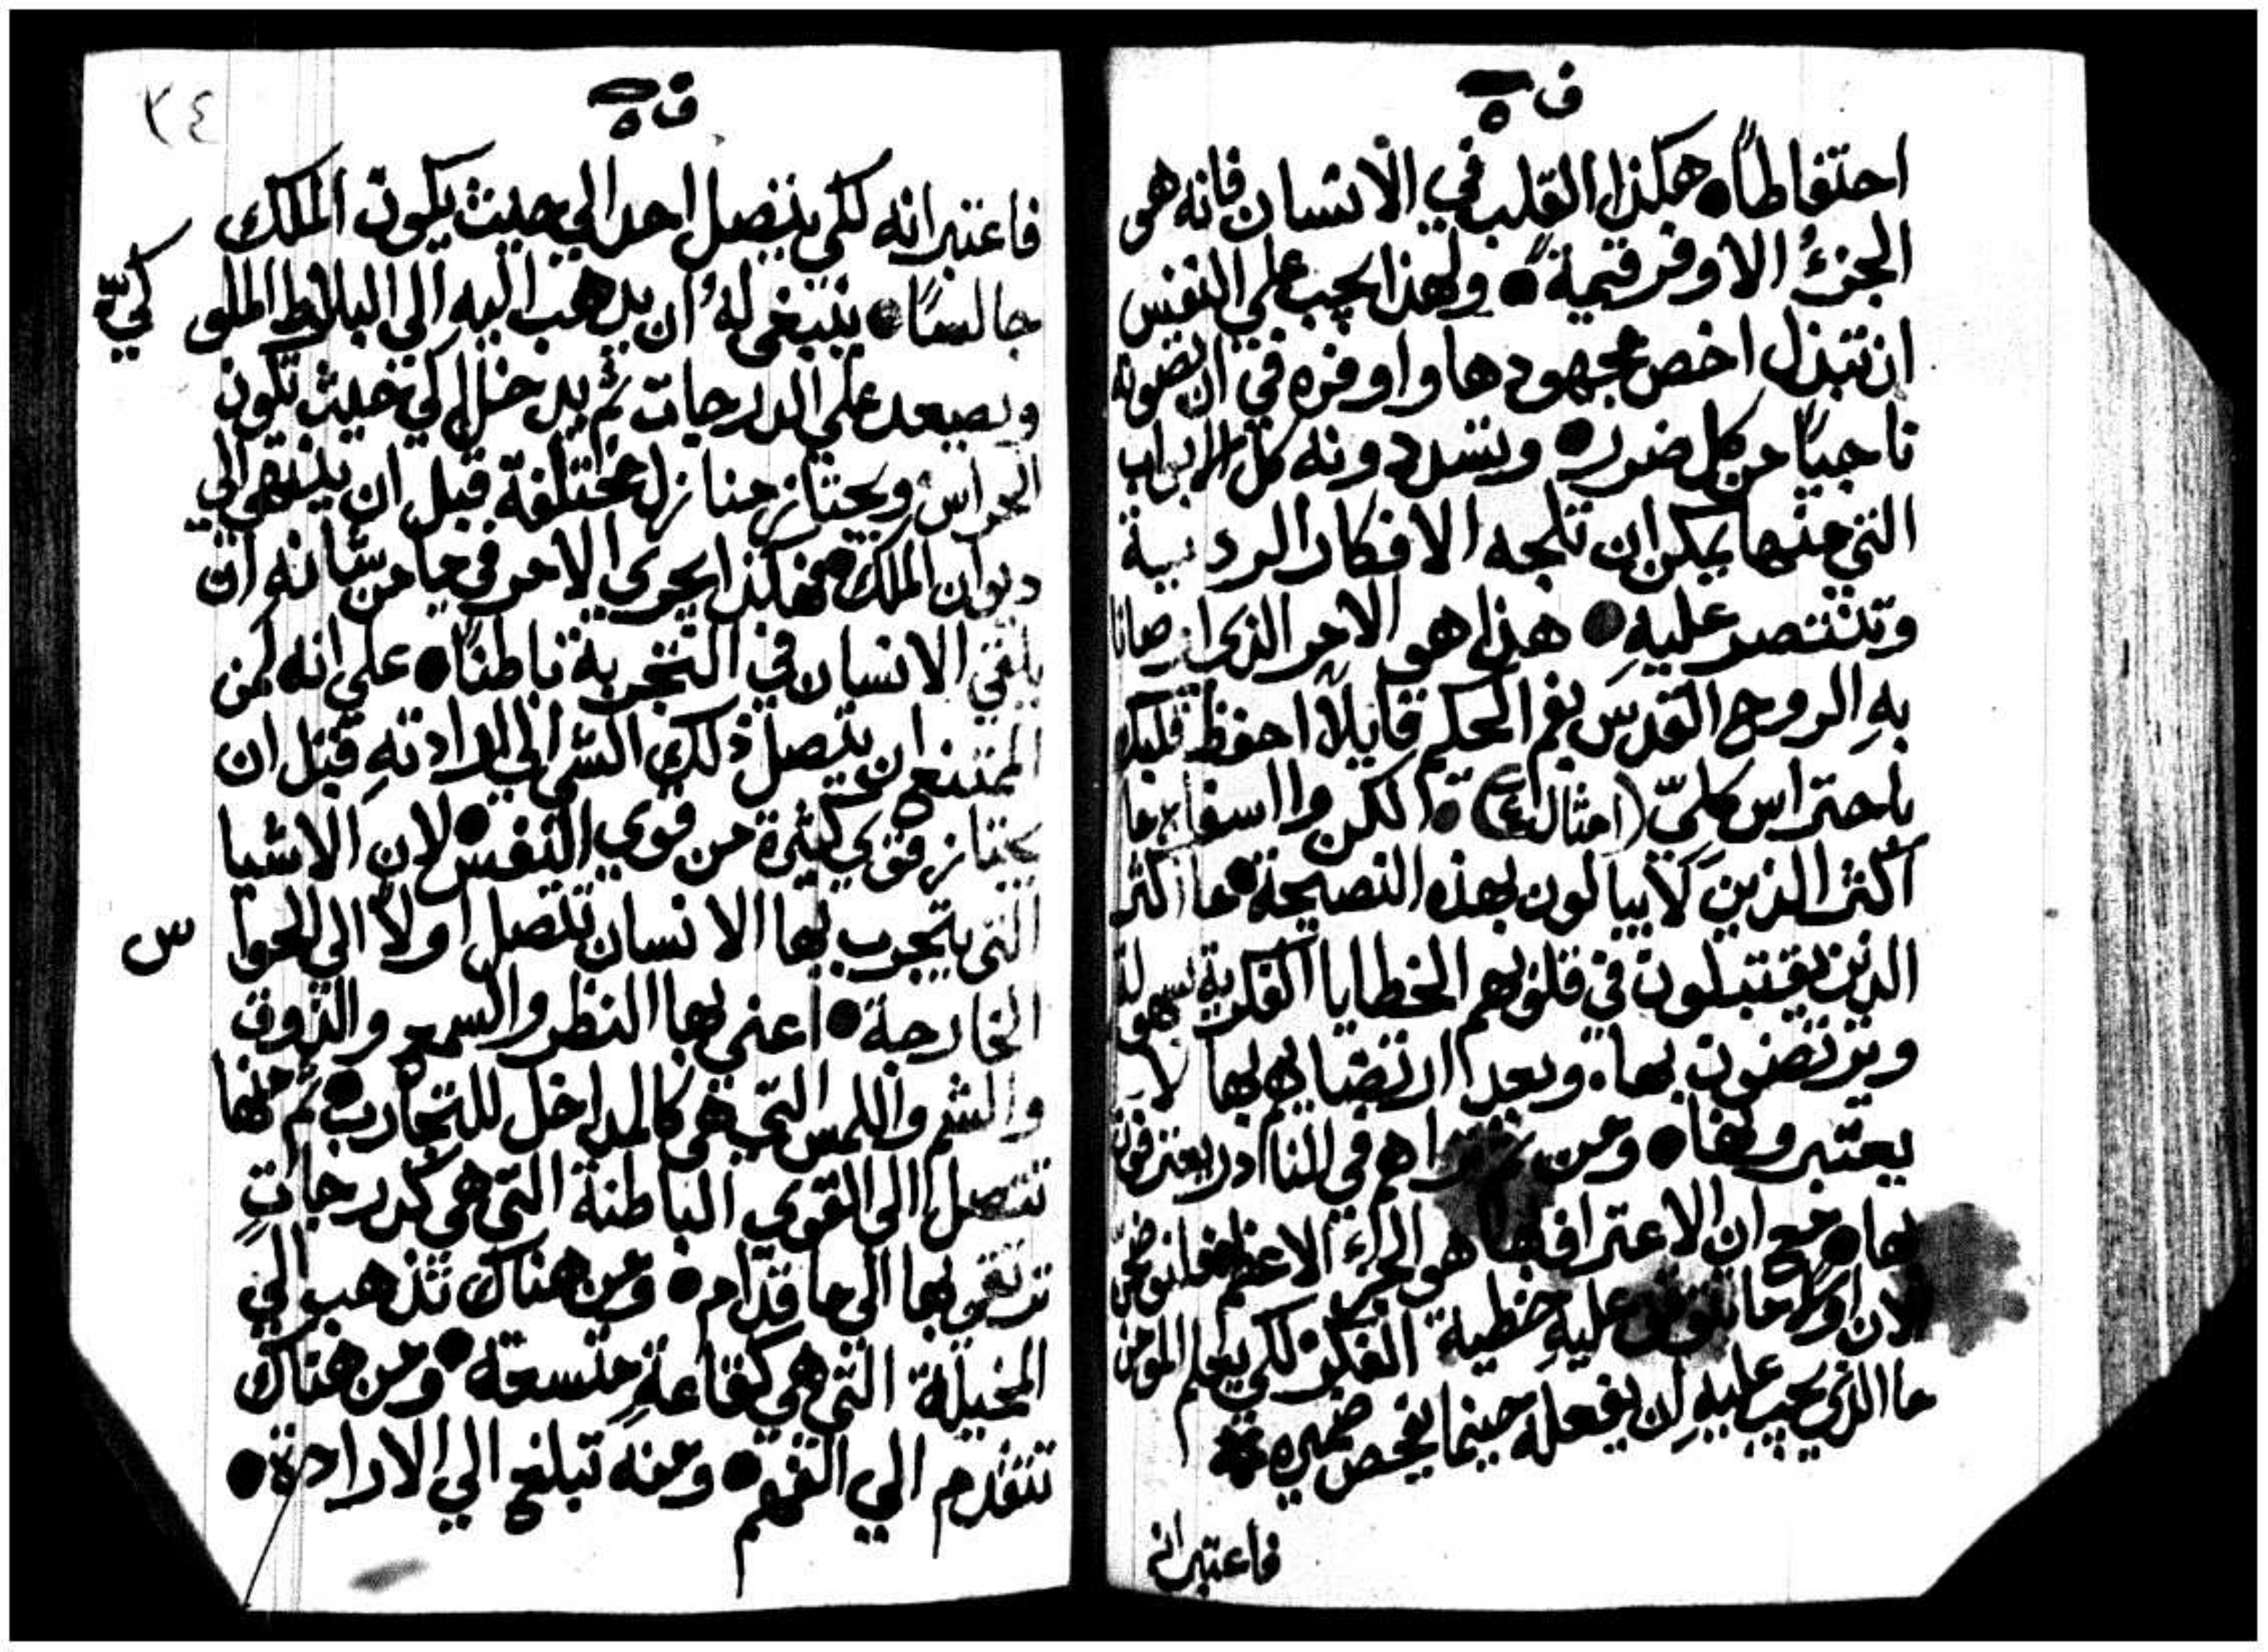 ف ٥
احتفاظاً • هكذا القلب في الانسان فانه هو
الجزؤ الاوفر قيمة • ولهذا يجب علي النفس
ان تبذل اخص مجهودها واوفره في ان تصونه
ناجياً من كل ضرر • وتسد دونه كل الابواب
التي منها يمكن ان تلجه الافكار الردية
وتنتصر عليهِ • هذا هو الامر الذي اوصانا
بهِ الروح القدس بفم الحكيم قايلاً احفظ قلبك
باحتراس كليّ (امثال ٤) • لكن وا اسفاه ما
اكثر الذين لا يبالون بهذه النصيحة • ما اكثر
الذين يقتبلون في قلوبهم الخطايا الفكرية بسهولة
ويرتضون بها • وبعد ارتضايهم بها لا
يعتبرونها • ومن ثم تراهم في النادر يعترفون
بها • مع ان الاعتراف بها هو الجزء الاعظم فلنوضحنّ
الان اولاً ما تتوقف عليهِ خطية الفكر لكي يعلم المومن
ما الذي يجب عليهِ ان يفعله حينما يفحص ضميره
فاعتبر انه
ف ٥
٣٤
فاعتبر انه لكي يتصل احد الي حيث يكون الملك
جالساً • ينبغي لهُ ان يذهب اليهِ الي البلاط الملو كيّ
ويصعد علي الدرجات ثم يدخل الي حيث تكون
الحراس ويجتاز منازل مختلفة قبل ان ينتهي الي
ديوان الملك • فهكذا يجري الامر في ما من شانه ان
يلقي الانسان في التجربة باطناً • علي انه لمن
الممتنع ان يتصل ذلك الشي الي ارادتهِ قبل ان
يجتاز قوي كثيرة من قوي النفس • لان الاشيا
التي يتجرب بها الانسان تتصل اولاً الي الحوا س
الخارجة • اعني بها النظر والسمع والذوق
والشم واللمس التي هي كالمداخل للتجارب • ثم منها
تتصل الي القوي الباطنة التي هي كدرجاتٍ
ترتقي بها الي ما قدّام • ومن هناك تذهب الي
المخيلة التي هي كقاعةٍ متسعة • ومن هناك
تتقدم الي الفهم • ومنه تبلغ الي الارادة •